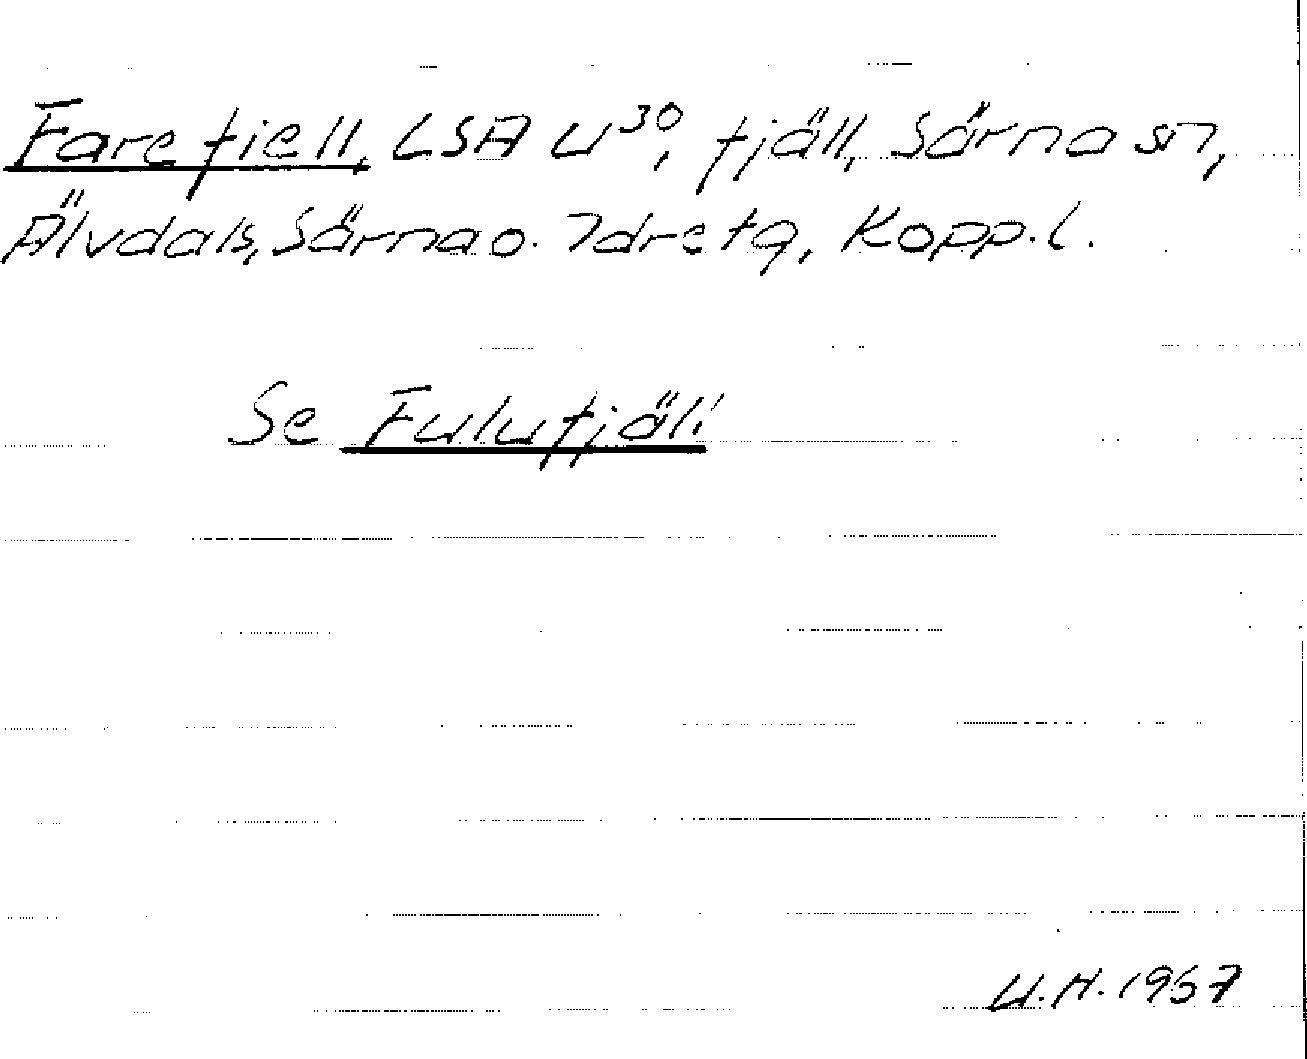 Farefjell, LSA U30, fjäll, Särna sn,
Älvdals, Särna o. Idre tg, Kopp. l.
Se Fulufjäll
U.H. 1967